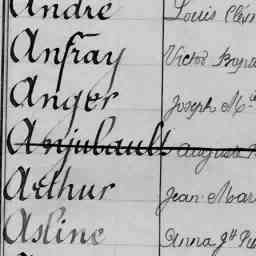 André Louis
Anfray Victor
Anger Joseph M
Anjubault Auguste
Arthur Jean Mar
Asline Anna